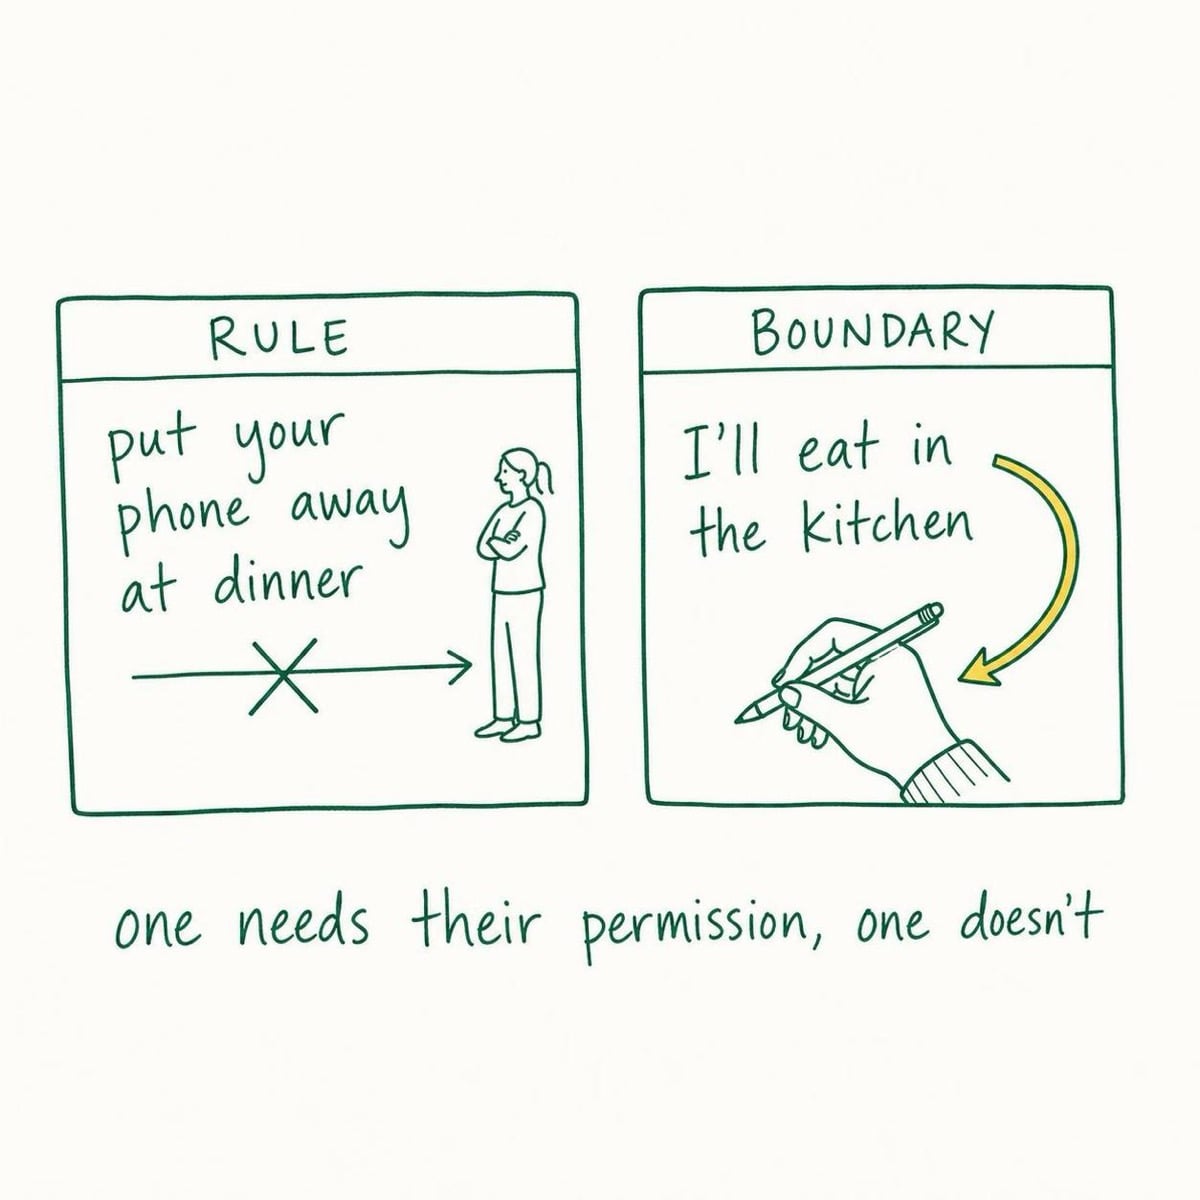 RULE
put your
phone away
at dinner
BOUNDARY
I'll eat in
the kitchen
one needs their permission, one doesn't